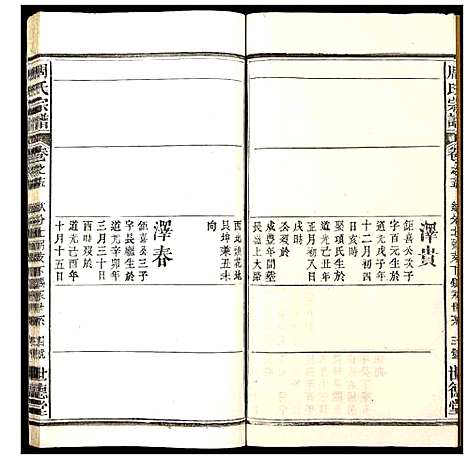 周氏宗譜
卷之五
世德堂
澤貴
鉅喜公次子
字百元生於
道光戊子年
十二月初四
日亥時
娶項氏生於
道光己丑年
正月初八日
戌時
公歿於
咸豐年間塟
長嶺上大路
西北棉花地
長埠兼丑未
向
澤春
鉅喜公三子
字長庭生於
道光辛卯年
三月三十日
酉時歿於
道光己酉年
十月十五日
周氏宗譜
卷之五
世德堂